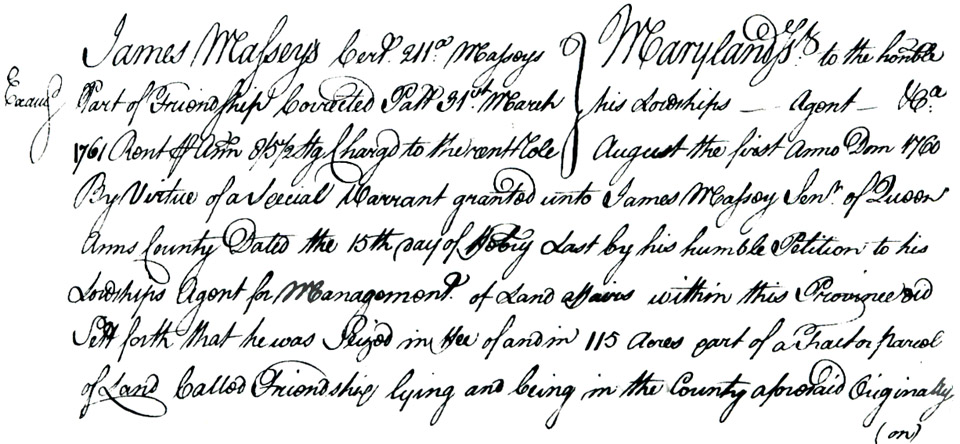 James Masseys Cert. 211a. Masseys } Maryland Ss to the honble
Examd Part of Friendship Corrected Patt 31st March his Lordships — Agent — &Ca.
1761 Rent ⅌ Ann 8/5½ Stg Chargd to the rent Role August the first Anno Dom 1760
By Virtue of a Special Warrant granted unto James Massey Senr. of Queen
Anns County Dated the 15th day of Febry Last by his humble Petition to his
Lordships Agent for Management. of Land affairs within this Province did
Sett forth that he was Seized in Fee of and in 115 Acres part of a Tract or parcel
of Land Called Friendship lying and being in the County aforesaid Originally
(on)